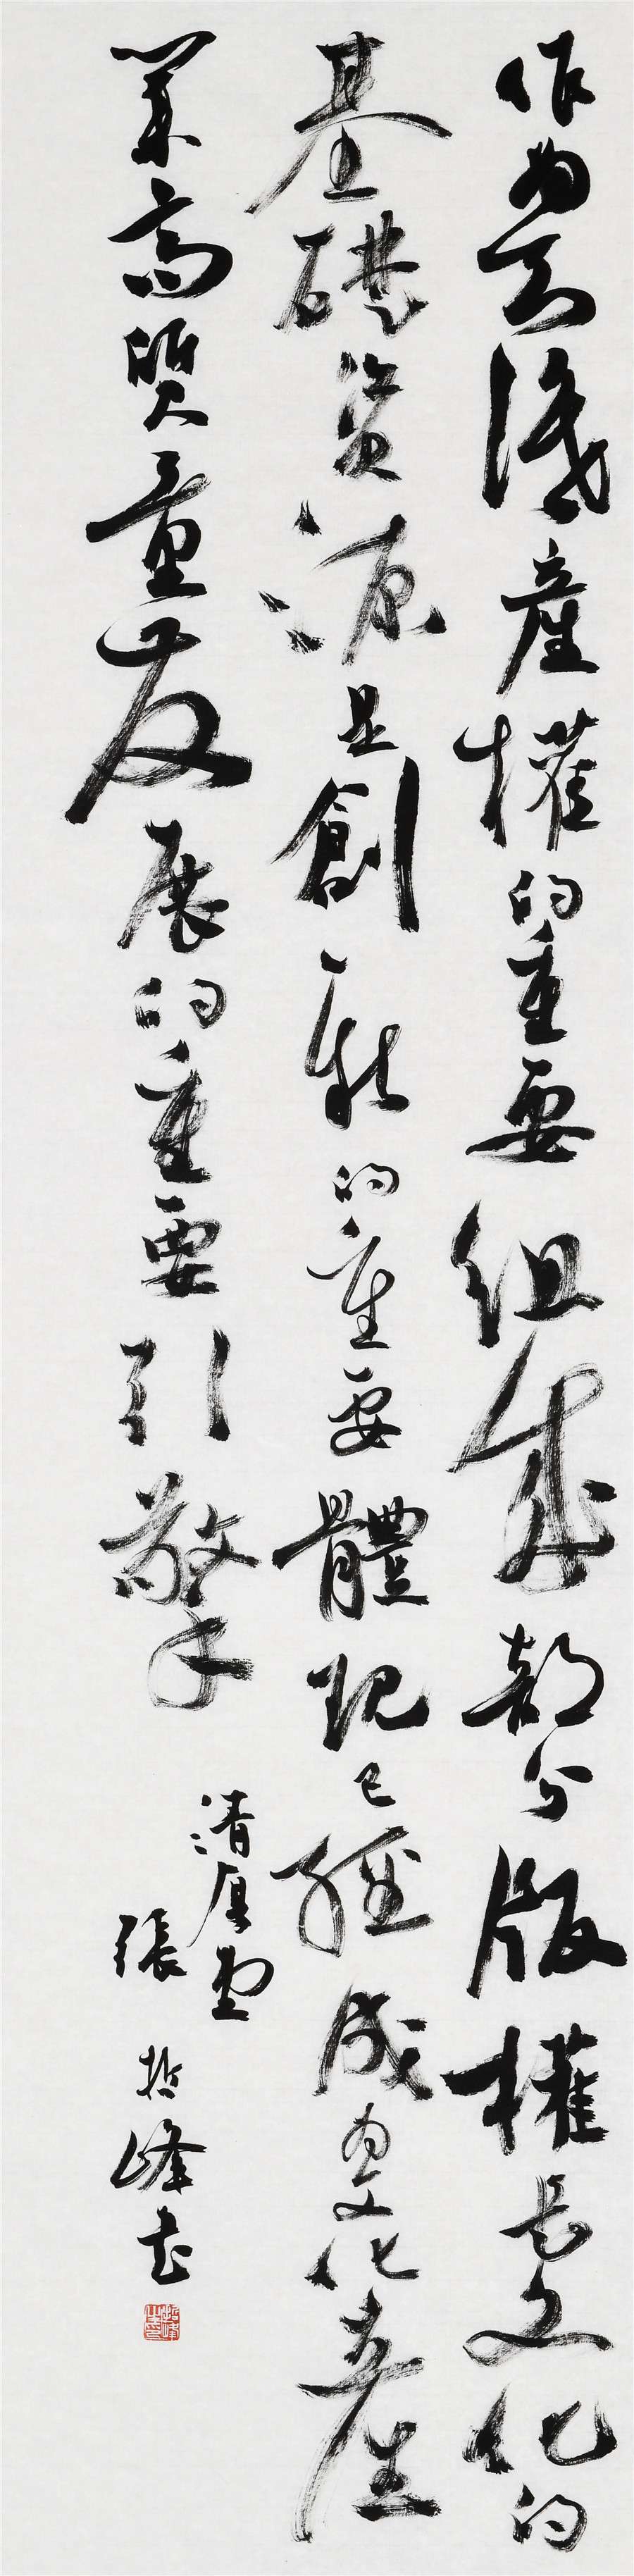 作为知识產權的重要组成部分版權是文化的
基礎資源是創新的重要體现已經成为文化產
業高質量发展的重要引擎
清厚堂
張哲峰书